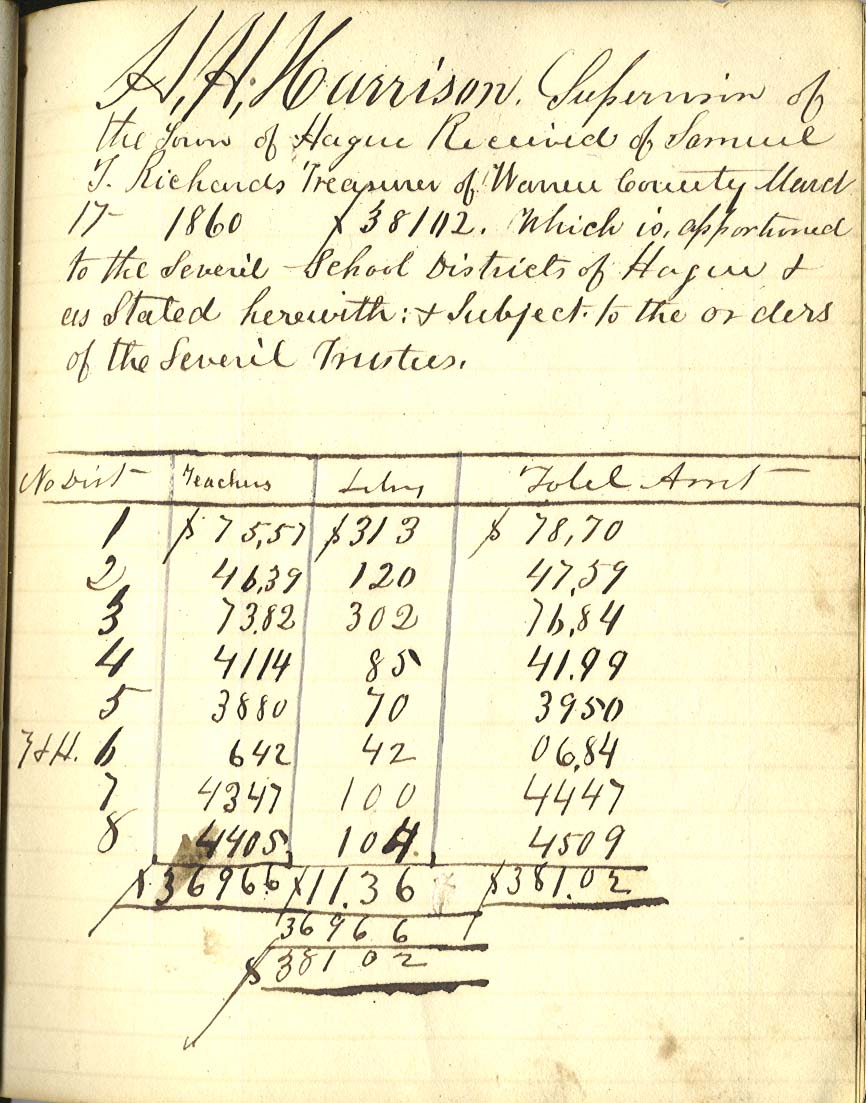 H, H, Harrison. Supervisor of
the Town of Hague Received of Samuel
T. Richards Treasurer of Warren County March
17 1860 $38102. Which is, apportioned
to the Severil School Districts of Hague &
as Stated herewith: & Subject to the orders
of the Severil Trustees.
No Dist Teachers Libry Totel Amt
1 $75,57 $313 $78,70
2 46,39 120 47,59
3 73.82 302 76,84
4 4114 85 41.99
5 3880 70 3950
6 642 42 06,84
7 4347 100 4447
8 4405 104 4509
$36966 $11.36 $381.02
36966
$38102